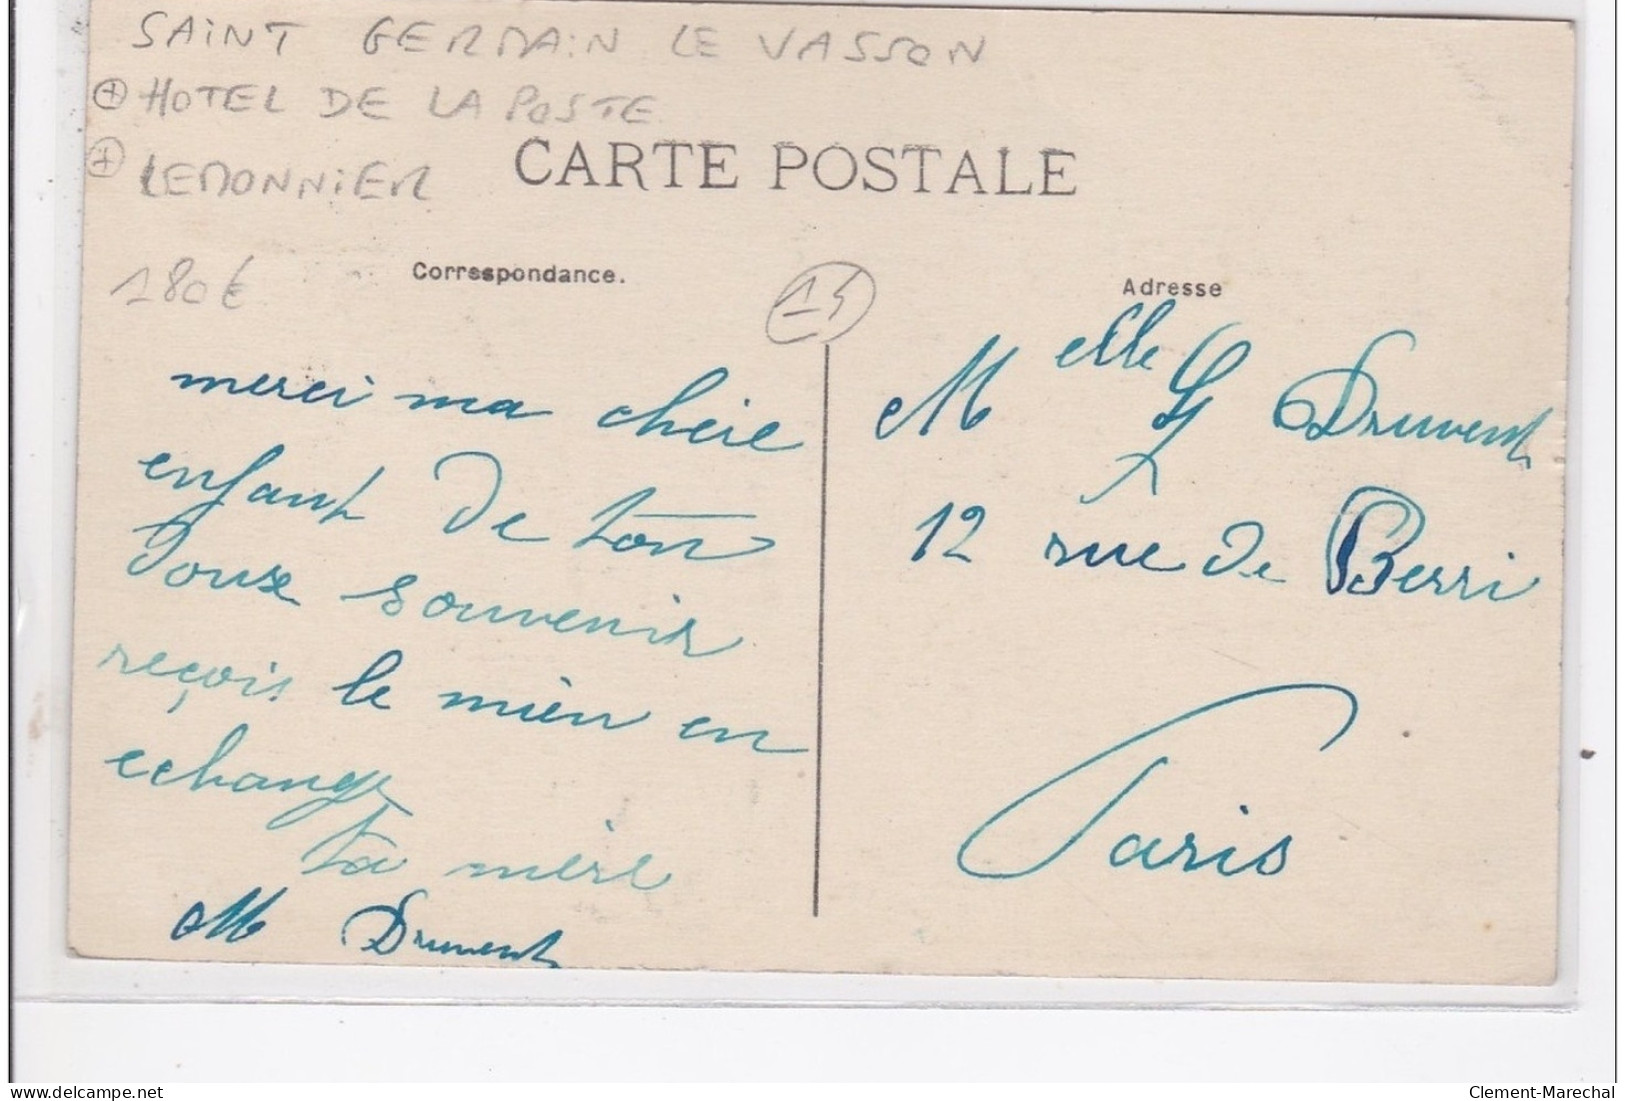 SAINT GERMAIN LE VASSON
+ HOTEL DE LA POSTE
+ LEMONNIER
CARTE POSTALE
180€
Corrsspondance.
15
Adresse
merci ma chère
enfant de ton
doux souvenir
reçois le mien en
echange
ta mère
M Druvent
Melle G Druvent
12 rue de Berri
Paris
delcampe.net
Clement-Marechal